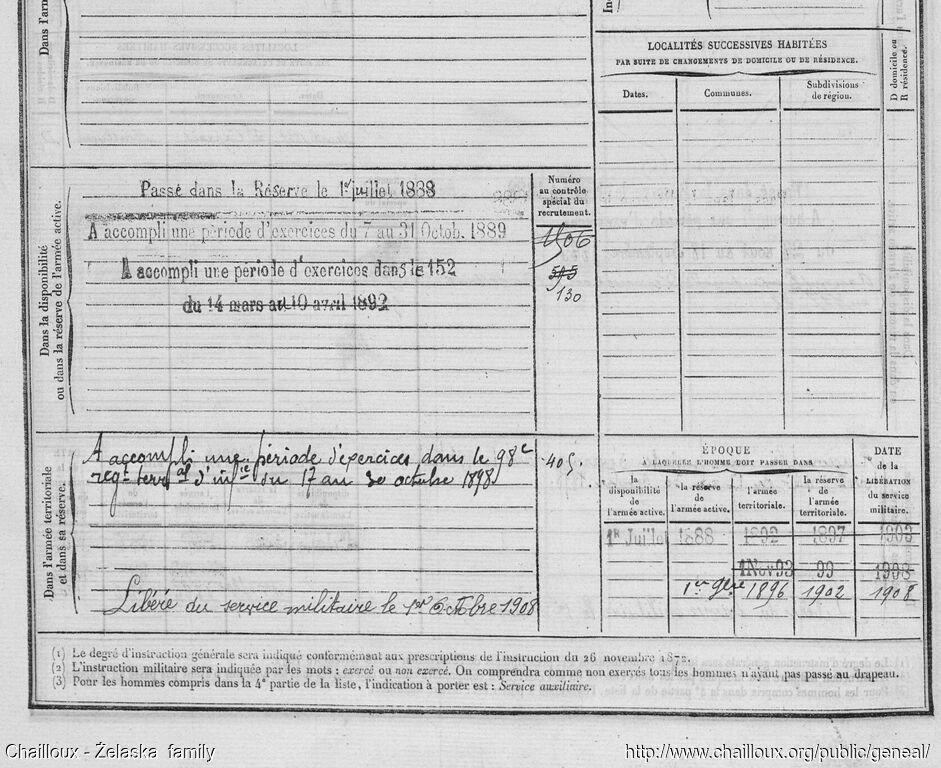 Dans l'arm
In
LOCALITÉS SUCCESSIVES HABITÉES
PAR SUITE DE CHANGEMENTS DE DOMICILE OU DE RÉSIDENCE.
Dates.
Communes.
Subdivisions
de région.
D domicile ou
R résidence.
Dans la disponibilité
ou dans la réserve de l'armée active.
Passé dans la Réserve le 1er juillet 1888
A accompli une période d'exercices du 7 au 31 Octob. 1889
A accompli une période d'exercices dans le 152
du 14 mars au 10 avril 1892
Numéro
au contrôle
spécial du
recrutement.
1506
515
130
Dans l'armée territoriale
et dans sa réserve.
A accompli une période d'exercices dans le 98e
regt terral d'infie du 17 au 30 octobre 1898
405.
Libéré du service militaire le 1er Octobre 1908
ÉPOQUE
A LAQUELLE L'HOMME DOIT PASSER DANS
DATE
de la
LIBÉRATION
du service
militaire.
la
disponibilité
de
l'armée active.
la réserve
de
l'armée active,
l'armée
territoriale.
la réserve
de
l'armée
territoriale.
1r Juillet 1888 1892 1897 1903
1 Nov 93 99 1908
1896 1902 1908
(1) Le degré d'instruction générale sera indiqué conformément aux prescriptions de l'instruction du 26 novembre 1872.
(2) L'instruction militaire sera indiquée par les mots : exercé ou non exercé. On comprendra comme non exercés tous les hommes n'ayant pas passé au drapeau.
(3) Pour les hommes compris dans la 4e partie de la liste, l'indication à porter est : Service auxiliaire.
Chailloux - Żelaska family
http://www.chailloux.org/public/geneal/